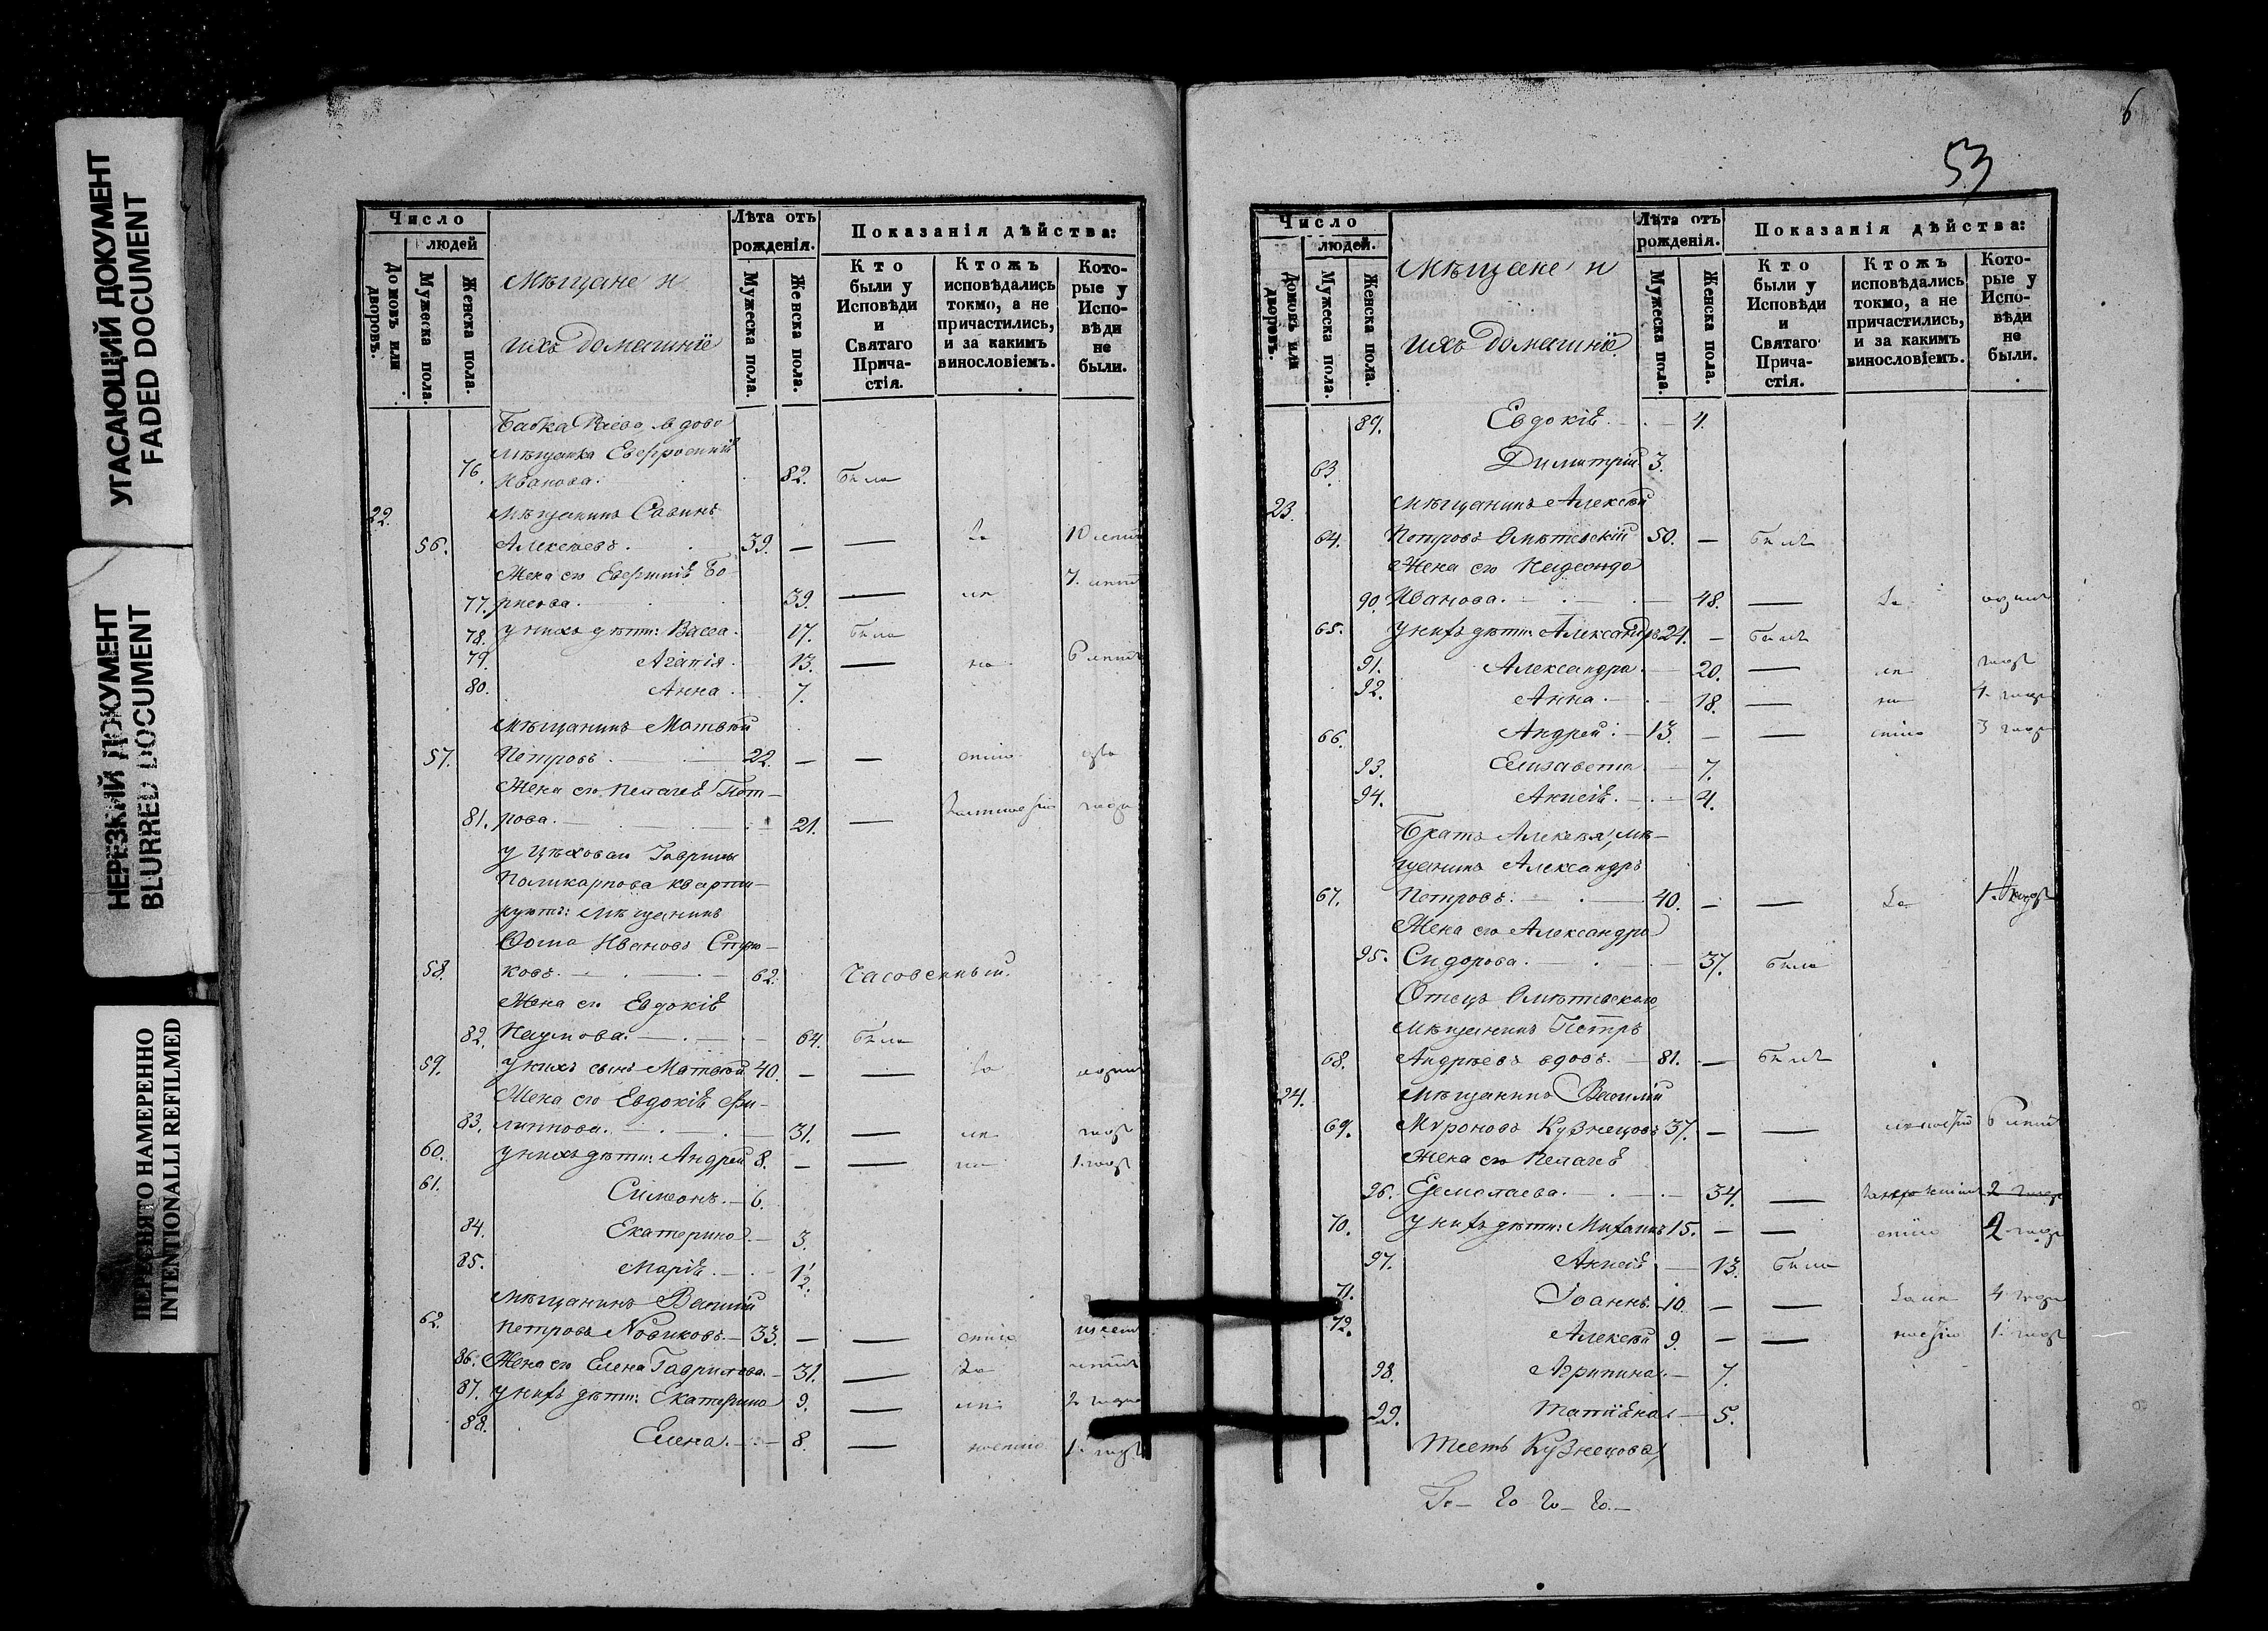 УГАСАЮЩИЙ ДОКУМЕНТ
FADED DOCUMENT
НЕРЕЗКИЙ ДОКУМЕНТ
BLURRED DOCUMENT
ПЕРЕСНЯТО НАМЕРЕННО
INTENTIONALLI REFILMED
Число
людей
Домовъ или дворовъ.
Мужеска пола.
Женска пола.
Мѣщане и
ихъ домашніе
Лѣта отъ рожденія.
Мужеска пола.
Женска пола.
Показанія дѣйства:
Кто были у Исповѣди и Святаго Причастія.
Ктожъ исповѣдались токмо, а не причастились, и за какимъ винословіемъ.
Которые у Исповѣди не были.
Бабка вдова
мѣщанка Евфросинія
76. Иванова. 82. была
22. мѣщанинъ Савинъ
56. Алексѣевъ. 39. — — за 10 лѣтъ
Жена его Бо-
77. рисова. 39. — 7. лѣтъ
78. у нихъ дѣти: Васса. 17. была
79. Агапія. 13. — 6 лѣтъ
80. Анна. 7.
мѣщанинъ Матвей
57. Петровъ. 22. — — два
Жена его Пелагея Пет-
81. рова. 21. — года
у цѣховаго Гаврилы
Поликарпова кварти-
руютъ: мѣщанинъ
Фома Ивановъ
58. ковъ. 62. Часовенный.
Жена его Евдокія
82. Наумова. 64. была
59. у нихъ сынъ Матвей 40. — — за одинъ
Жена его Евдокія Фи-
83. липпова. 31. — годъ
60. у нихъ дѣти: Андрей 8. — — 1. годъ
61. Симеонъ. 6.
84. Екатерина. 3.
85. Марія. 1/2.
мѣщанинъ Василій
62. Петровъ Новиковъ. 33. — —
86. Жена его Елена Гаврилова. 31. — за лѣтъ
87. у нихъ дѣти: Екатерина 9. — 2 года
88. Елена. 8. — 1. годъ
6
53
Число
людей.
Домовъ или дворовъ.
Мужеска пола.
Женска пола.
Мѣщане и
ихъ домашніе.
Лѣта отъ рожденія.
Мужеска пола.
Женска пола.
Показанія дѣйства:
Кто были у Исповѣди и Святаго Причастія.
Ктожъ исповѣдались токмо, а не причастились, и за какимъ винословіемъ.
Которые у Исповѣди не были.
89. Евдокія. 4.
63. Димитрій 3.
23. мѣщанинъ Алексѣй
64. Петровъ 50. — былъ
Жена его
90. Иванова. 48. — за один
65. у нихъ дѣти: Александръ 24. — былъ
91. Александра. 20. — годъ
92. Анна. 18. — 4. года
66. Андрей. 13. — — 3 года
93. Елизавета. 7.
94. Анисія. 4.
Братъ Алексѣя, мѣ-
щанинъ Александръ
67. Петровъ. 40. — — за 1. годъ
Жена его Александра
95. Сидорова. 37. была
Отецъ
мѣщанинъ Петръ
68. Андрѣевъ вдовъ. 81. — былъ
24. мѣщанинъ Василій
69. Мироновъ Кузнецовъ 37. — — 6 лѣтъ
Жена его Пелагея
96. Ермолаева. 34. —
70. у нихъ дѣти: Михаилъ 15. — — 2 года
97. Анисія 13. была
71. Іоаннъ. 10. — — 4 года
72. Алексѣй 9. — — 1. годъ
98. Агрипина. 7.
99. Татіана 5.
Тесть Кузнецова,